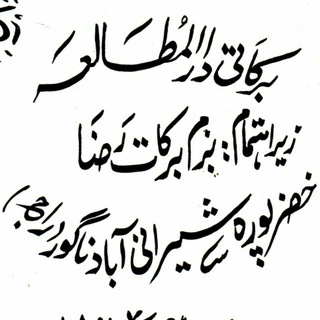 برکاتی دارالمطالعہ
زیر اہتمام: بزم برکات رضا
خضر پورہ شیرانی آباد ناگور (راج)